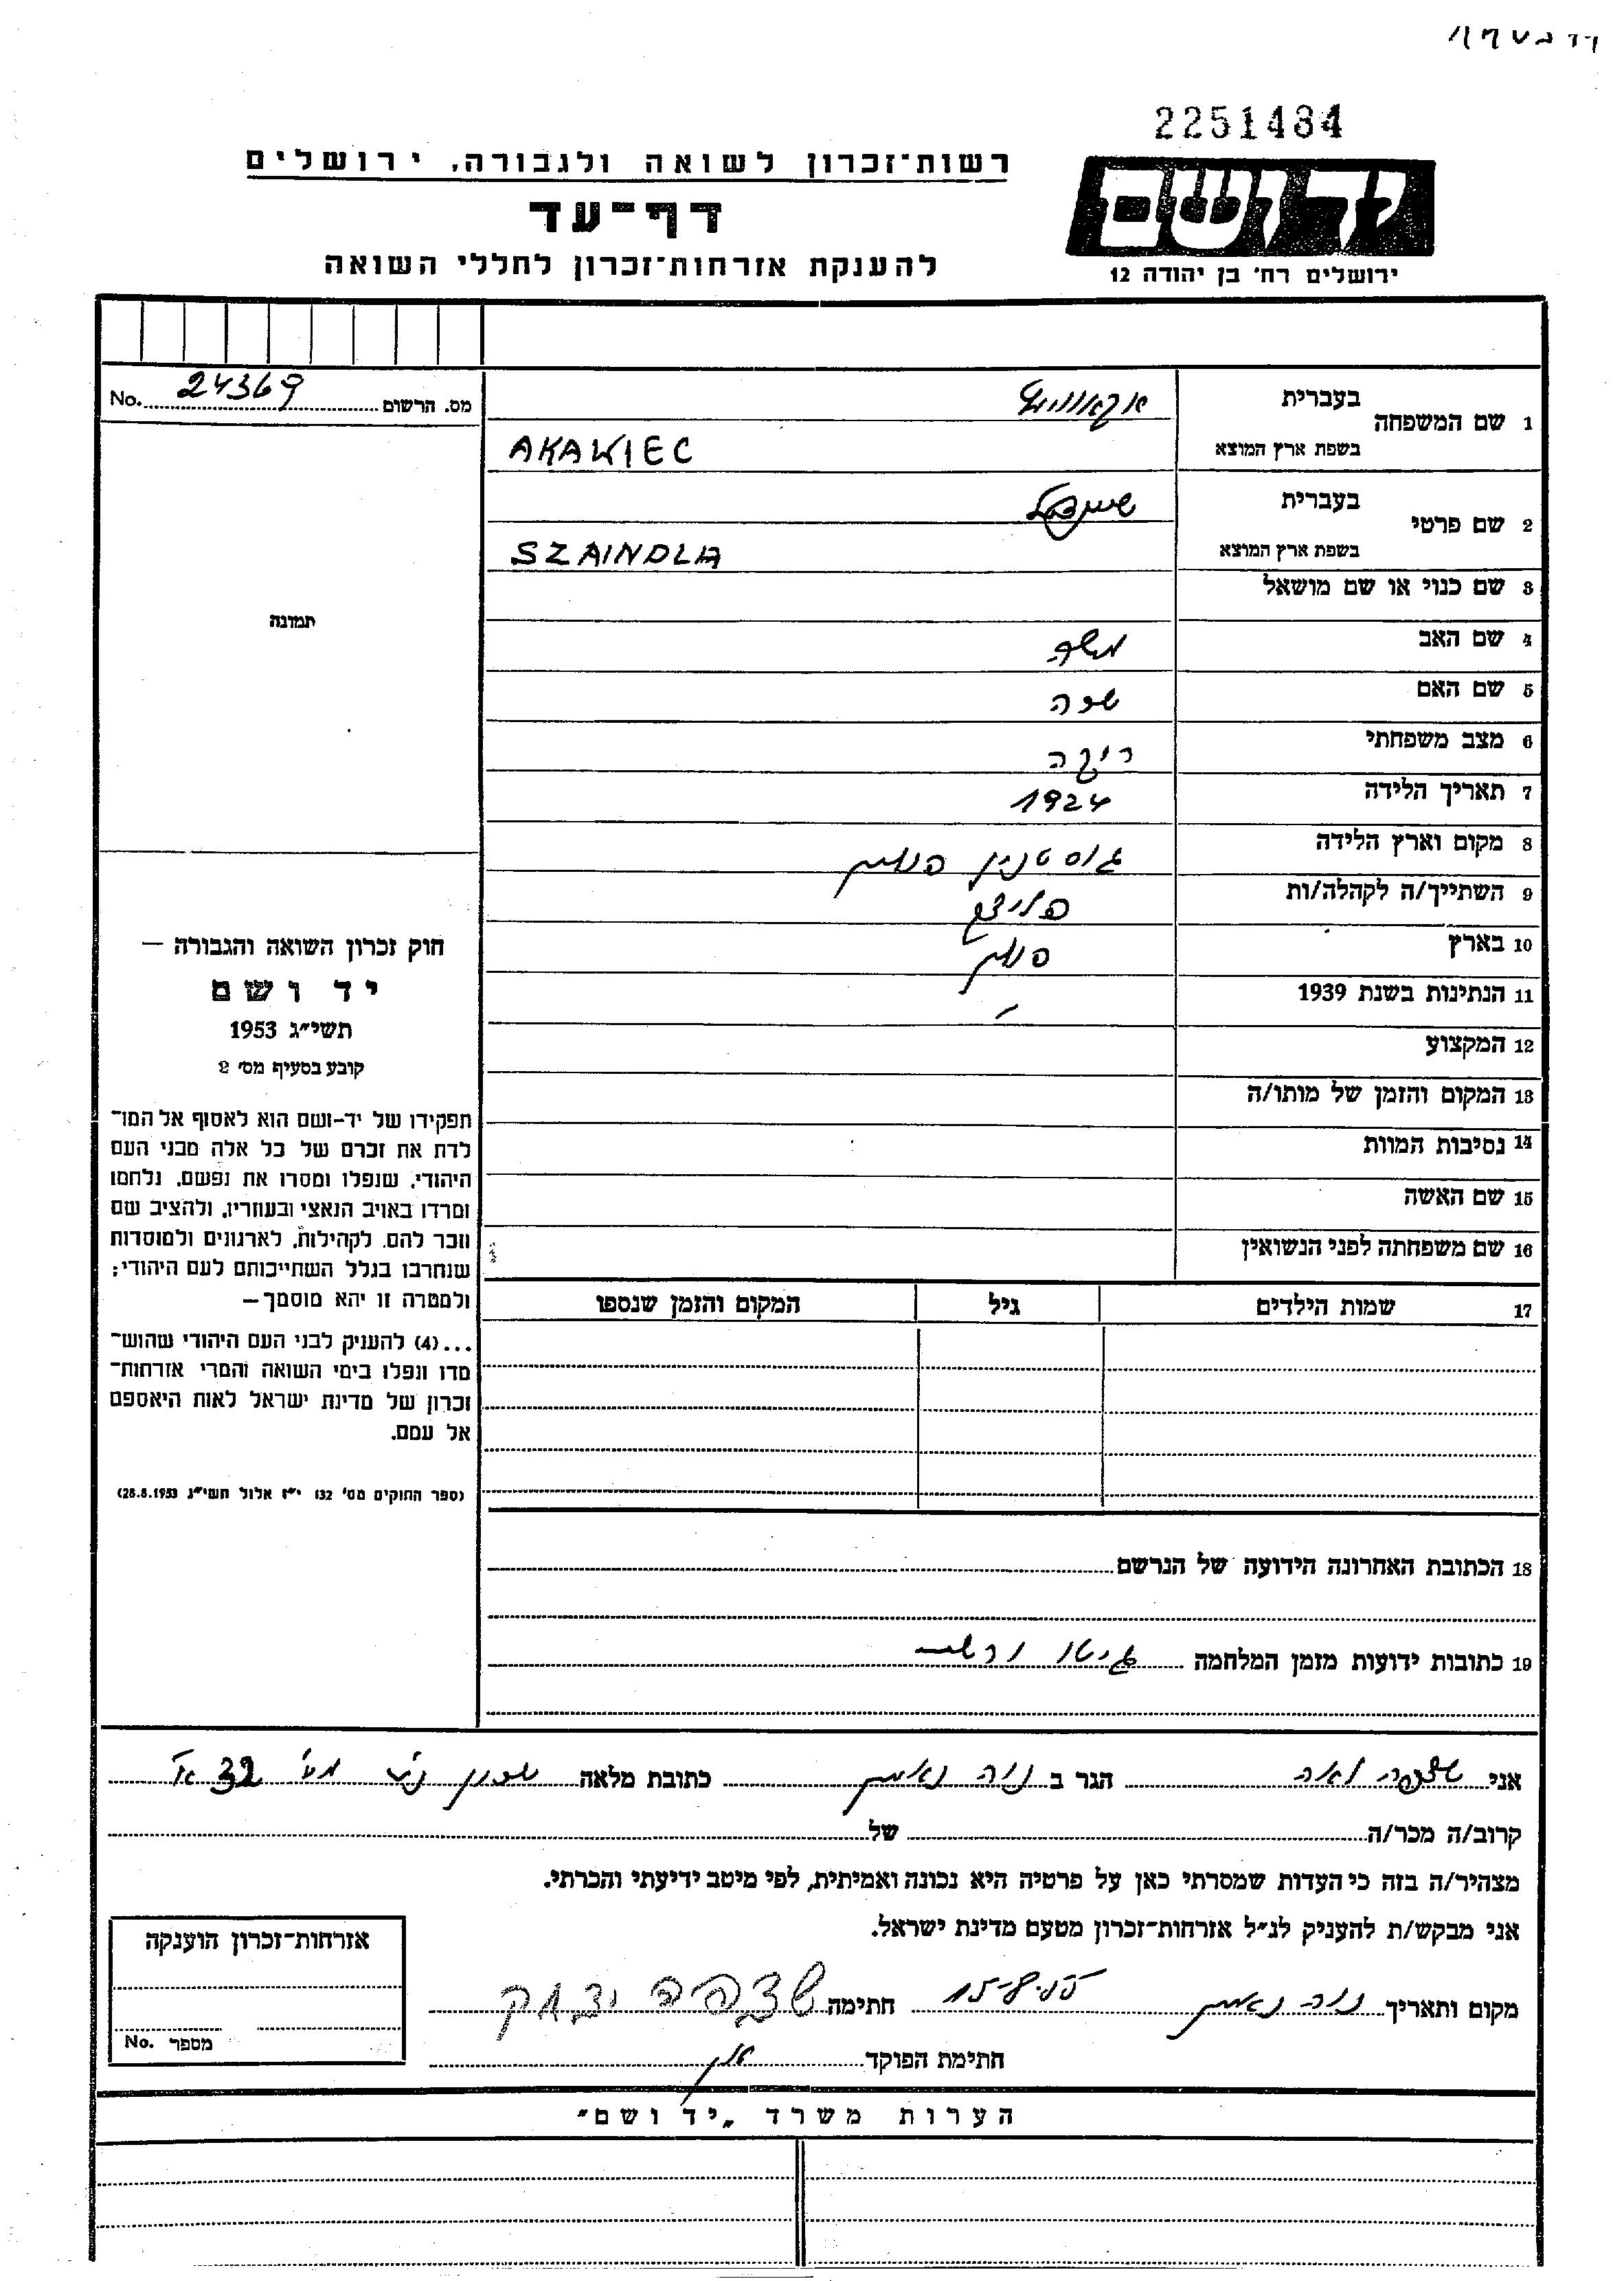 2251484
יד ושם
ירושלים רח׳ בן יהודה 12
רשות־זכרון לשואה ולגבורה, ירושלים
דף־עד
להענקת אזרחות־זכרון לחללי השואה
מס. הרשום 24369 No.
1 שם המשפחה בעברית
בשפת ארץ המוצא AKAWIEC
2 שם פרטי בעברית שיינדל
בשפת ארץ המוצא SZAINDLA
3 שם כנוי או שם מושאל
4 שם האב משה
5 שם האם
6 מצב משפחתי רוקה
7 תאריך הלידה 1924
8 מקום וארץ הלידה גוסטנין פולין
9 השתייך/ה לקהלה/ות
10 בארץ פולין
11 הנתינות בשנת 1939
12 המקצוע
13 המקום והזמן של מותו/ה
14 נסיבות המוות
15 שם האשה
16 שם משפחתה לפני הנשואין
17 שמות הילדים גיל המקום והזמן שנספו
18 הכתובת האחרונה הידועה של הנרשם
19 כתובות ידועות מזמן המלחמה גיטו ורשה
תמונה
חוק זכרון השואה והגבורה —
יד ושם
תשי״ג 1953
קובע בסעיף מס׳ 2
תפקידו של יד-ושם הוא לאסוף אל המו־
לדת את זכרם של כל אלה מבני העם
היהודי, שנפלו ומסרו את נפשם, נלחמו
ומרדו באויב הנאצי ובעוזריו, ולהציב שם
וזכר להם, לקהילות, לארגונים ולמוסדות
שנחרבו בגלל השתייכותם לעם היהודי;
ולמטרה זו יהא מוסמך—
...(4) להעניק לבני העם היהודי שהוש־
מדו ונפלו בימי השואה והמרי אזרחות־
זכרון של מדינת ישראל לאות היאספם
אל עמם.
(ספר החוקים מס׳ 132 י״ז אלול תשי״ג 28.8.1953)
אני לאה הגר ב נוה נאמן כתובת מלאה שכון מס׳ 32
קרוב/ה מכר/ה של
מצהיר/ה בזה כי העדות שמסרתי כאן על פרטיה היא נכונה ואמיתית, לפי מיטב ידיעתי והכרתי.
אני מבקש/ת להעניק לנ״ל אזרחות־זכרון מטעם מדינת ישראל.
מקום ותאריך נוה נאמן 15.8.55 חתימה יצחק
חתימת הפוקד
אזרחות־זכרון הוענקה
מספר No.
הערות משרד „יד ושם״